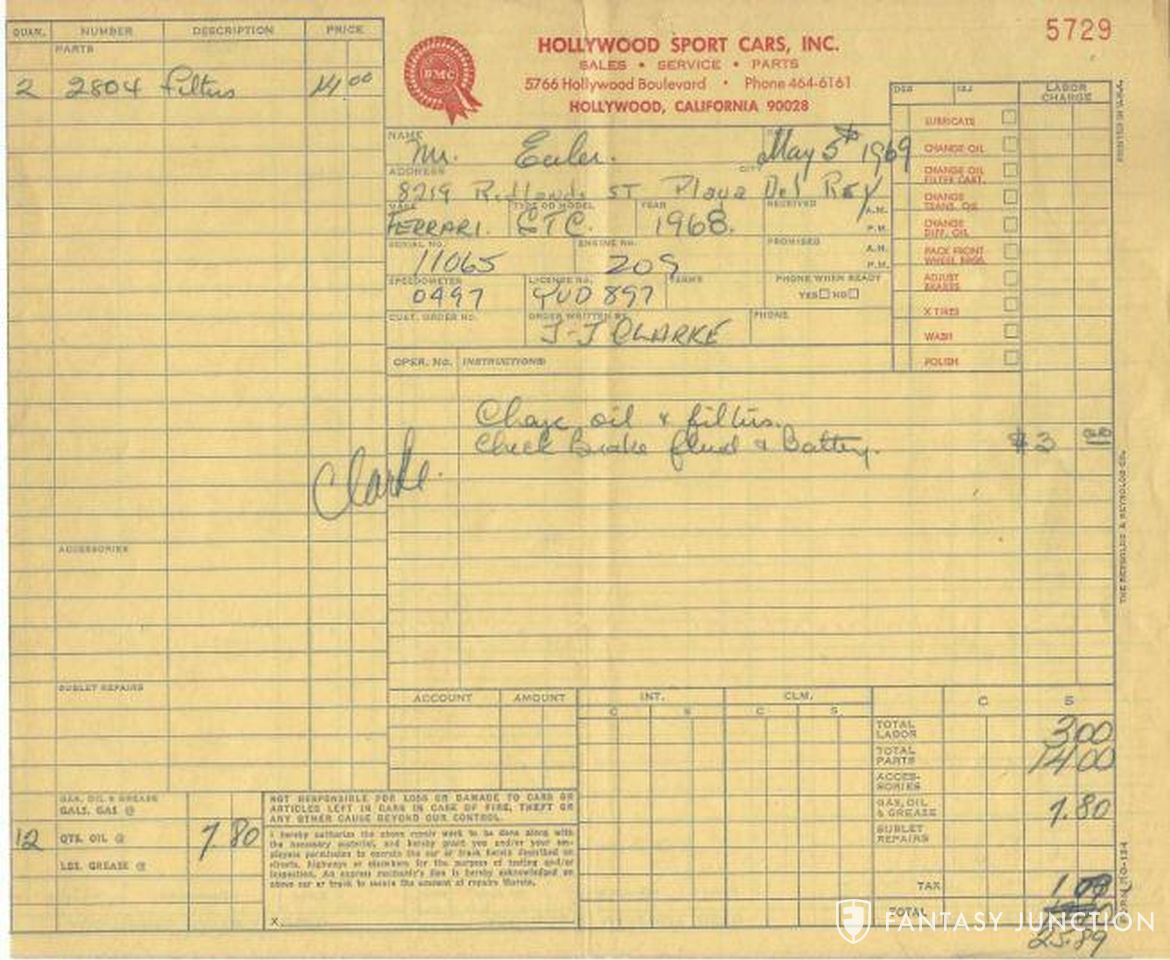 5729
HOLLYWOOD SPORT CARS, INC.
SALES • SERVICE • PARTS
5766 Hollywood Boulevard • Phone 464-6161
HOLLYWOOD, CALIFORNIA 90028
BMC
QUAN. NUMBER DESCRIPTION PRICE
PARTS
2 2804 filters 14 00
LABOR CHARGE
LUBRICATE
CHANGE OIL
CHANGE OIL FILTER CART.
CHANGE TRANS. OIL
CHANGE DIFF. OIL
PACK FRONT WHEEL BRGS.
ADJUST BRAKES
X TIRES
WASH
POLISH
PRINTED IN U.S.A.
NAME
Mr. Euler. May 5th 1969
ADDRESS CITY
8219 Redlands ST Playa Del Rey
MAKE TYPE OR MODEL YEAR RECEIVED A.M.
FERRARI. GTC. 1968. P.M.
SERIAL NO. ENGINE NO. PROMISED A.M.
11065 209 P.M.
SPEEDOMETER LICENSE NO. TERMS PHONE WHEN READY
0497 YUD 897 YES NO
CUST. ORDER NO. ORDER WRITTEN BY PHONE
J-J CLARKE
OPER. NO. INSTRUCTIONS
Change oil & filters.
Check Brake fluid & Battery. $3
Clarke.
ACCESSORIES
SUBLET REPAIRS
THE REYNOLDS & REYNOLDS CO.
ACCOUNT AMOUNT INT. CLM. C S
C S C S
TOTAL LABOR 3 00
TOTAL PARTS 14 00
ACCESSORIES
GAS, OIL & GREASE 7.80
SUBLET REPAIRS
TAX 1.09
TOTAL
25.89
GAS, OIL & GREASE
GALS. GAS @
12 QTS. OIL @ 7.80
LBS. GREASE @
NOT RESPONSIBLE FOR LOSS OR DAMAGE TO CARS OR
ARTICLES LEFT IN CARS IN CASE OF FIRE, THEFT OR
ANY OTHER CAUSE BEYOND OUR CONTROL.
I hereby authorize the above repair work to be done along with
the necessary material, and hereby grant you and/or your em-
ployees permission to operate the car or truck herein described on
streets, highways or elsewhere for the purpose of testing and/or
inspection. An express mechanic's lien is hereby acknowledged on
above car or truck to secure the amount of repairs thereto.
X
FANTASY JUNCTION